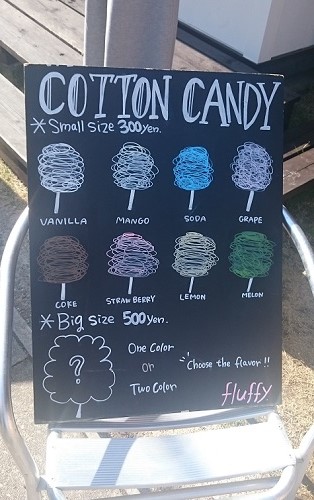 COTTON CANDY
*Small size 300yen.
VANILLA MANGO SODA GRAPE
COKE STRAWBERRY LEMON MELON
*Big size 500yen.
?
One Color
or
Two Color
Choose the flavor!!
fluffy